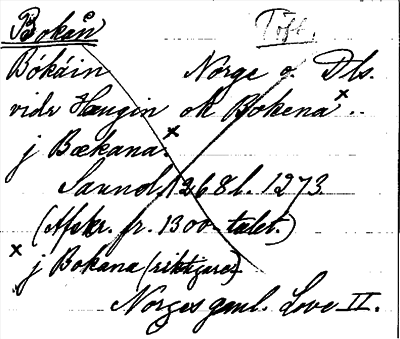 Bokån Töft.
Bókáin Norge o. Dls.
vidr Haugin ok Bokena x ..
j Bækana. x
Saund. 1268 l. 1273
(Afskr. fr. 1300-talet.)
x j Bokana (riktigare).
Norges gml. Love II.